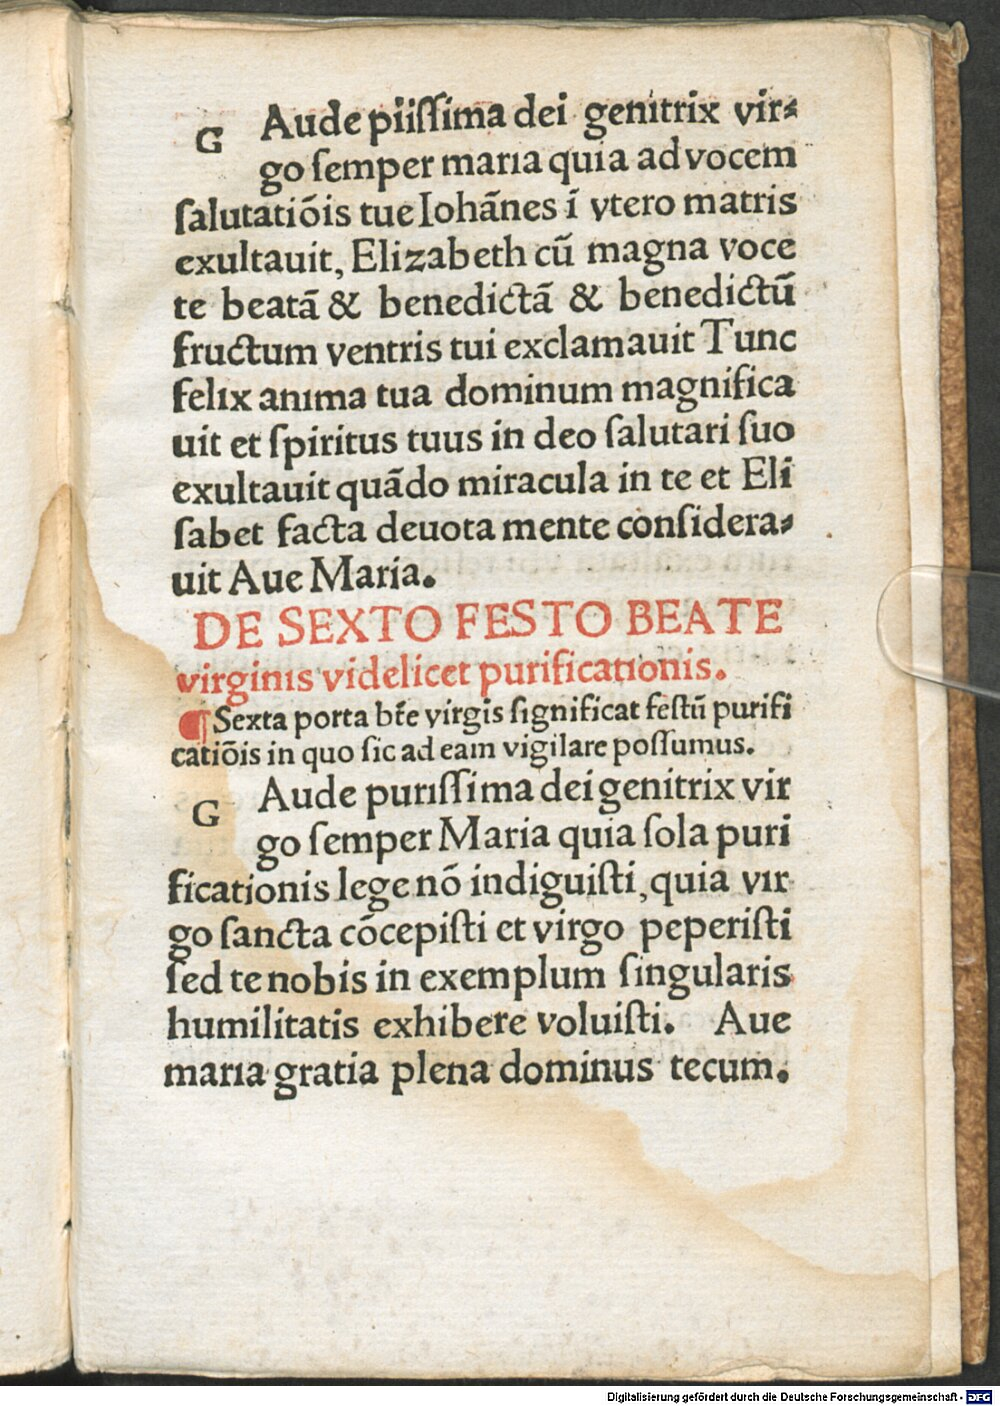 G Aude piiſſima dei genitrix vir⸗
go ſemper maria quia ad vocem
ſalutatiōis tue Iohānes ī vtero matris
exultauit, Elizabeth cū magna voce
te beatā & benedictā & benedictū
fructum ventris tui exclamauit Tunc
felix anima tua dominum magnifica
uit et ſpiritus tuus in deo ſalutari ſuo
exultauit quādo miracula in te et Eli
ſabet facta deuota mente conſidera⸗
uit Aue Maria.
DE SEXTO FESTO BEATE
virginis videlicet purificationis.
¶ Sexta porta bt̄e virgis ſignificat feſtū purifi
catiōis in quo ſic ad eam vigilare poſſumus.
G Aude puriſſima dei genitrix vir
go ſemper Maria quia ſola puri
ficationis lege nō indiguiſti, quia vir
go ſancta cōcepiſti et virgo peperiſti
ſed te nobis in exemplum ſingularis
humilitatis exhibere voluiſti. Aue
maria gratia plena dominus tecum.
Digitalisierung gefördert durch die Deutsche Forschungsgemeinschaft - DFG